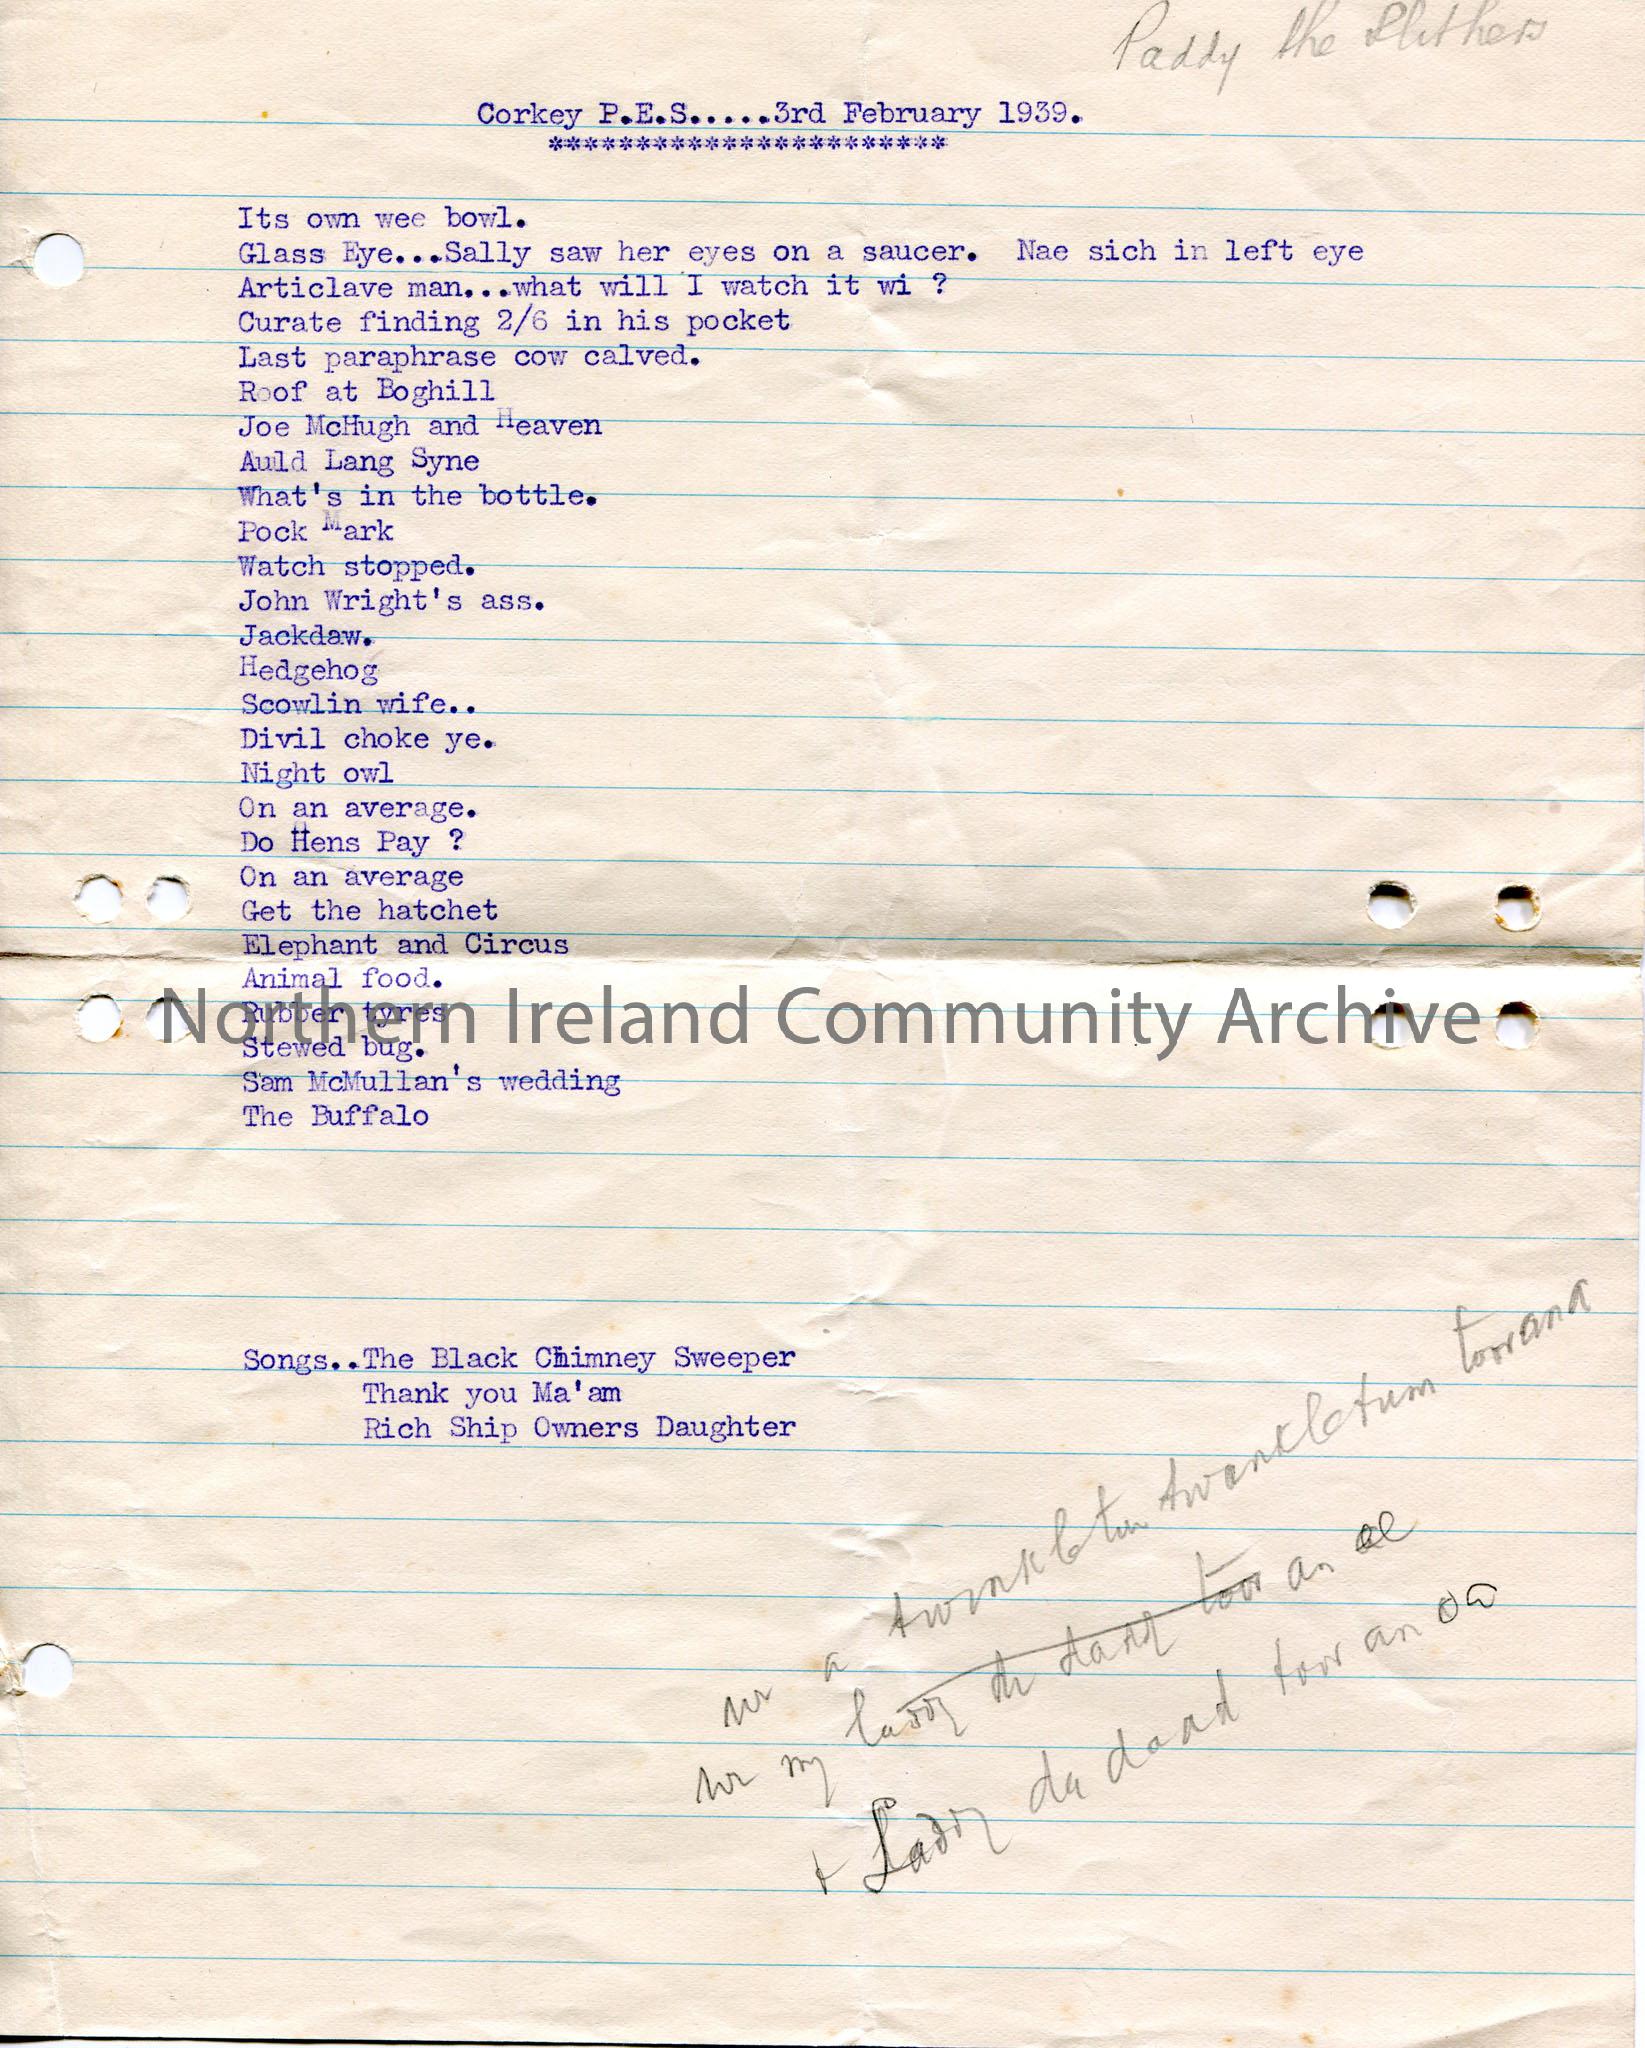 Paddy the
Corkey P.E.S.....3rd February 1939.
***********************
Its own wee bowl.
Glass Eye...Sally saw her eyes on a saucer.  Nae sich in left eye
Articlave man...what will I watch it wi ?
Curate finding 2/6 in his pocket
Last paraphrase cow calved.
Roof at Boghill
Joe McHugh and Heaven
Auld Lang Syne
What's in the bottle.
Pock Mark
Watch stopped.
John Wright's ass.
Jackdaw.
Hedgehog
Scowlin wife..
Divil choke ye.
Night owl
On an average.
Do Hens Pay ?
On an average
Get the hatchet
Elephant and Circus
Animal food.
Rubber tyres
Northern Ireland Community Archive
Stewed bug.
Sam McMullan's wedding
The Buffalo
Songs..The Black Chimney Sweeper
Thank you Ma'am
Rich Ship Owners Daughter
a twankletum toorana
my toor an
toor an